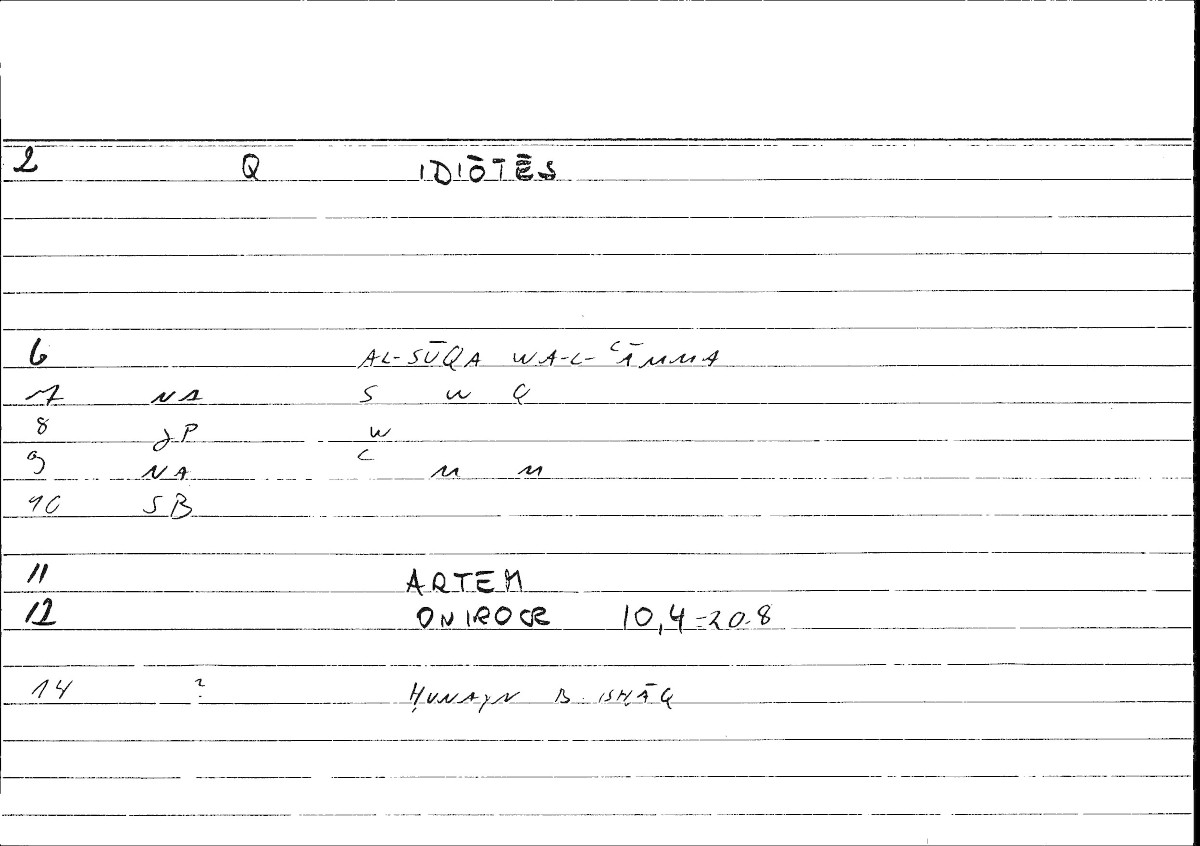 2 Q IDIŌTĒS
6 AL-SŪQA WA-L-ʿĀMMA
7 NA S W Q
8 JP W
9 NA ʿ M M
10 SB
11 ARTEM
12 ONIROCR 10,4=20.8
14 ? ḤUNAYN B. ISḤĀQ